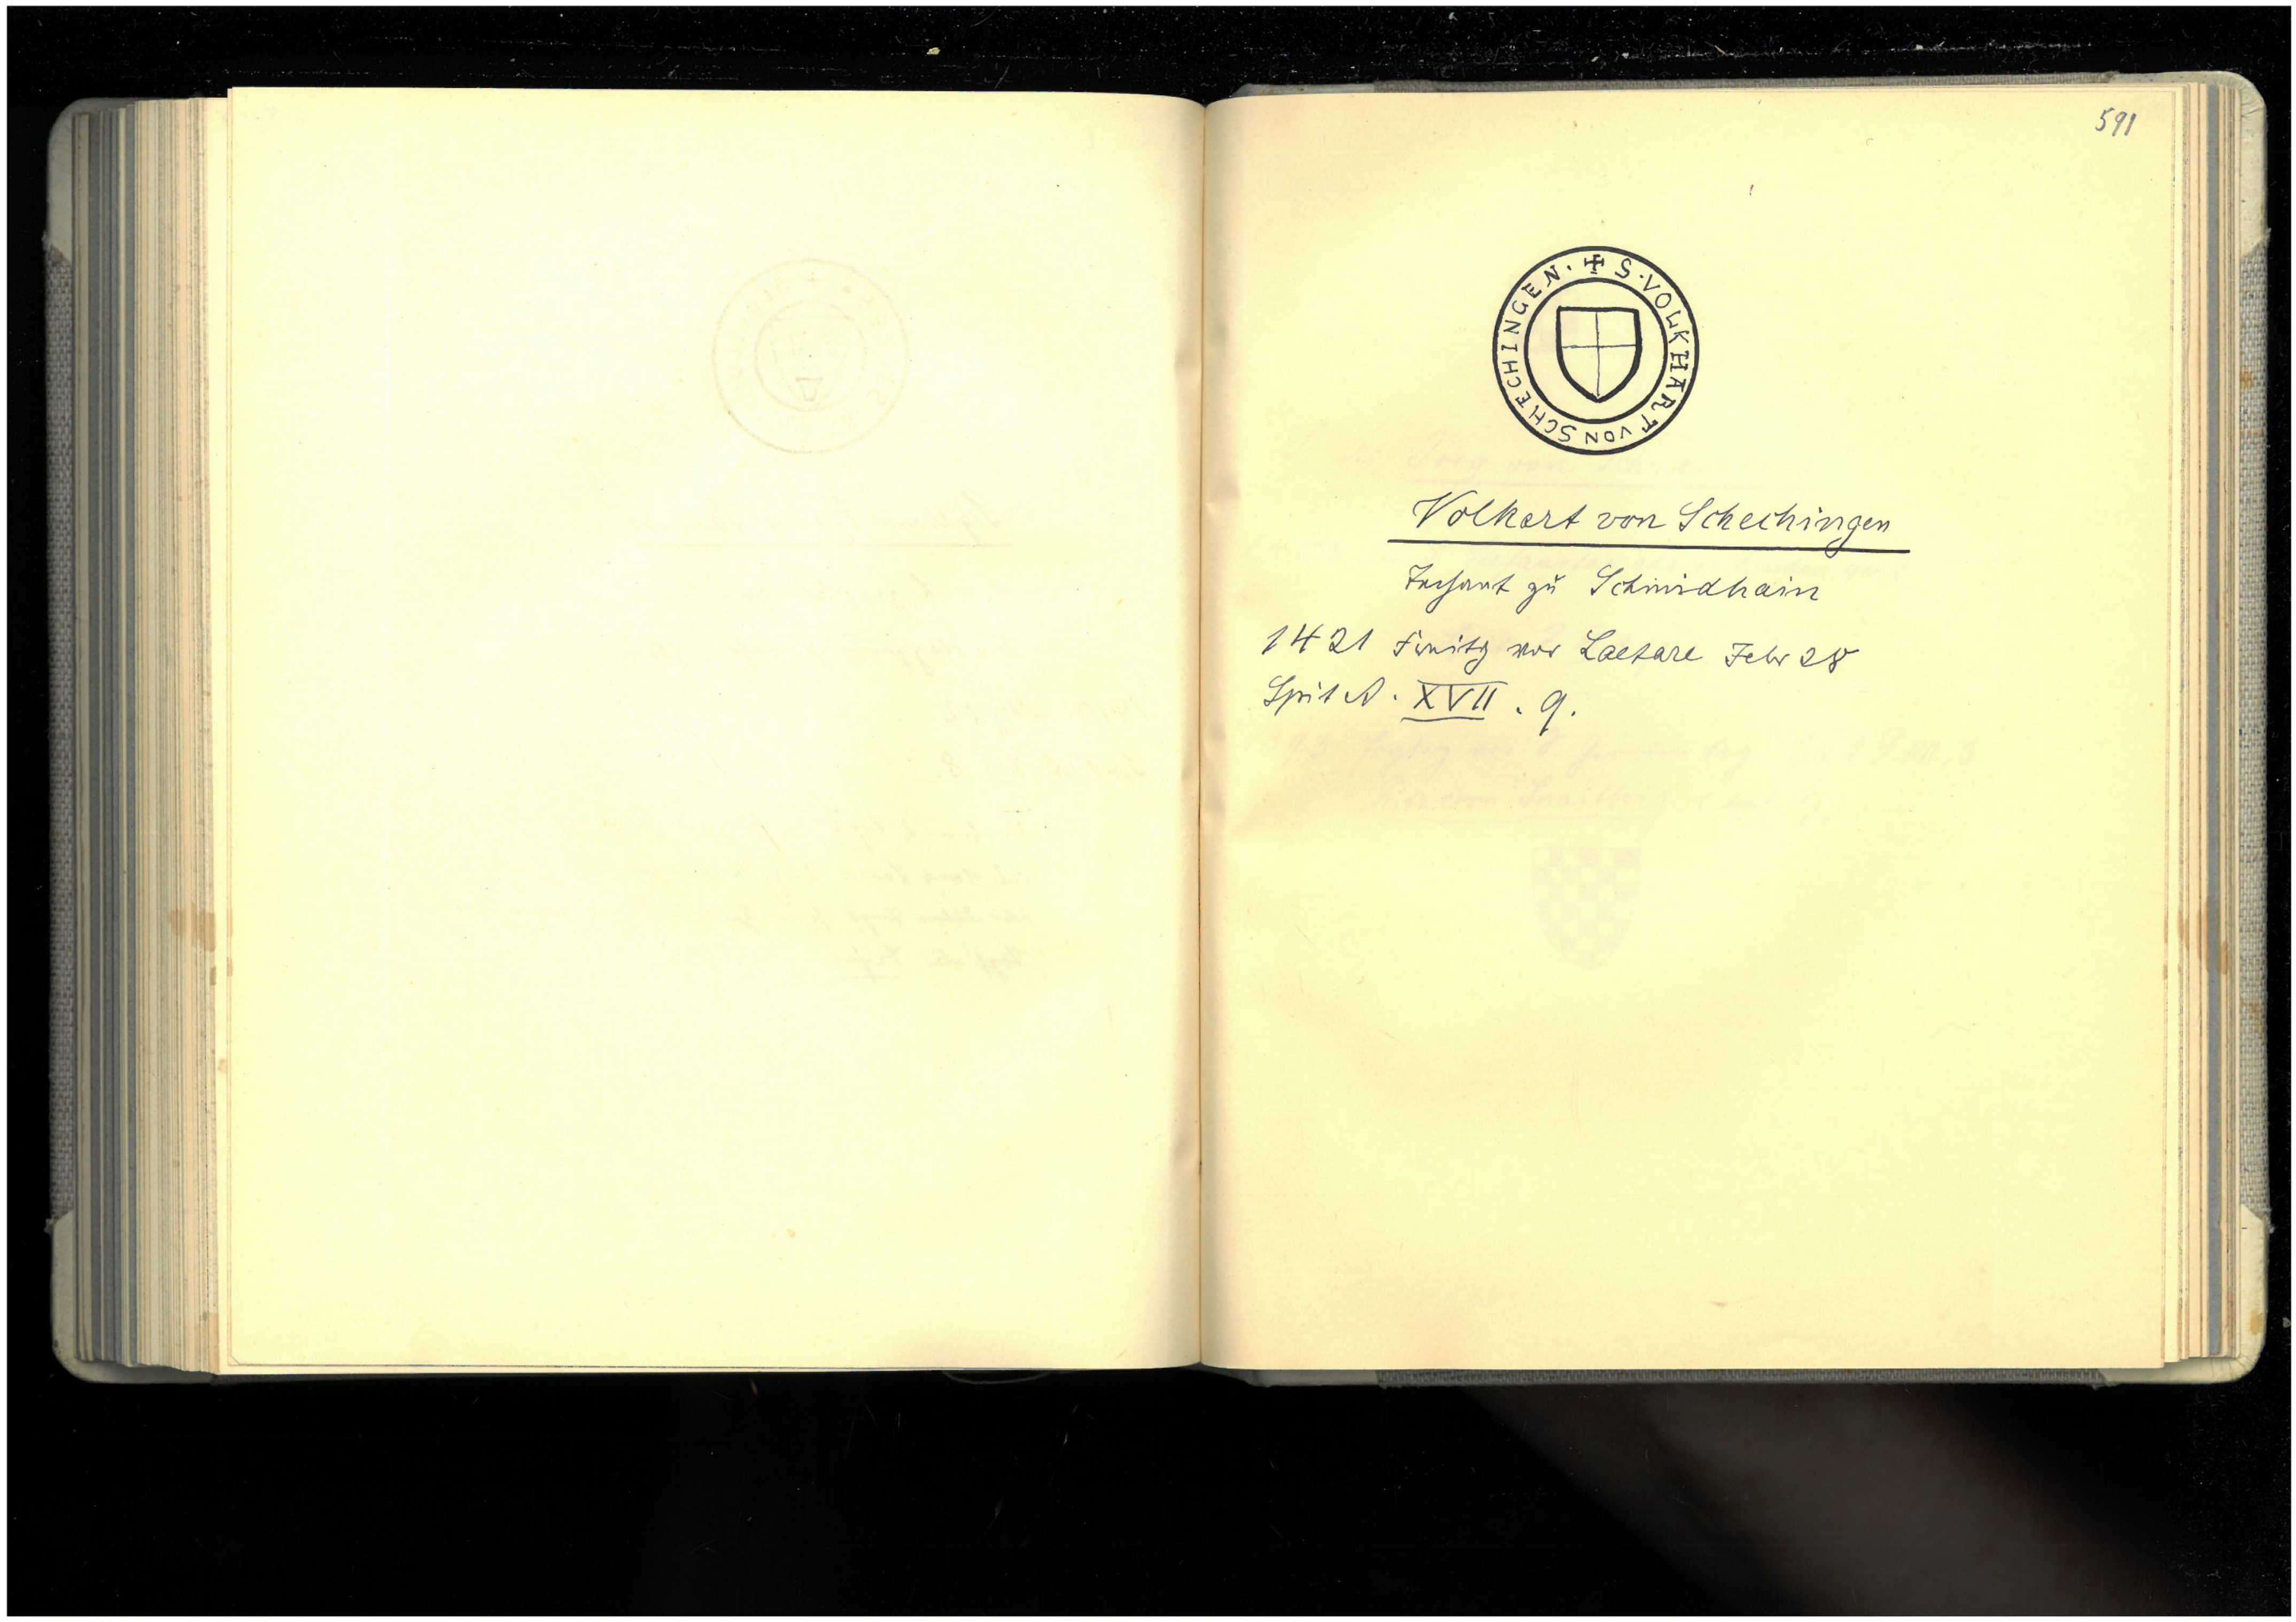 591
✠ S · VOLKHART VON SCHECHINGEN ·
Volkart von Schechingen
Dechant zu Schmidhain
1421 Freitg vor Laetare Febr 28
Spit A. XVII. 9.